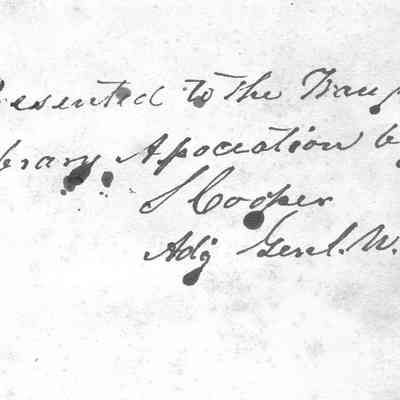 resented to the Trau
brary Association by
S Cooper
Adj Genl. W.